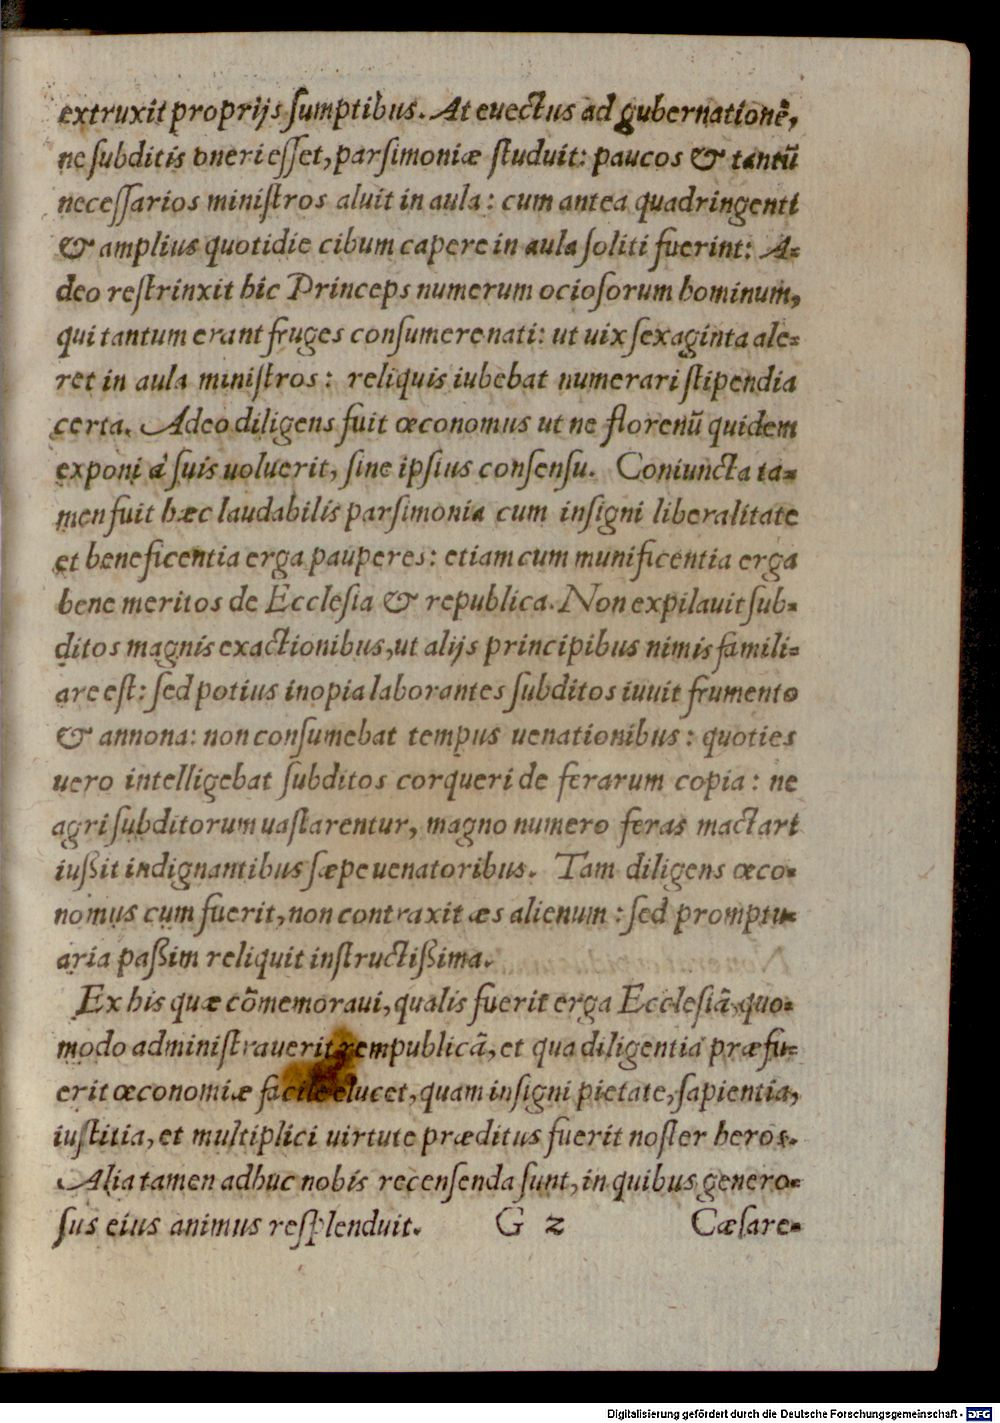 extruxit proprijs ſumptibus. At euectus ad gubernationẽ,
ne ſubditis oneri eſſet, parſimoniæ ſtuduit: paucos & tantũ
neceſſarios miniſtros aluit in aula: cum antea quadringenti
& amplius quotidie cibum capere in aula ſoliti fuerint: A=
deo reſtrinxit hic Princeps numerum ocioſorum hominum,
qui tantum erant fruges conſumere nati: ut uix ſexaginta ale=
ret in aula miniſtros: reliquis iubebat numerari ſtipendia
certa. Adeo diligens fuit œconomus ut ne florenũ quidem
exponi à ſuis uoluerit, ſine ipſius conſenſu. Coniuncta ta=
men fuit hæc laudabilis parſimonia cum inſigni liberalitate
et beneficentia erga pauperes: etiam cum munificentia erga
bene meritos de Eccleſia & republica. Non expilauit ſub=
ditos magnis exactionibus, ut alijs principibus nimis famili=
are eſt: ſed potius inopia laborantes ſubditos iuuit frumento
& annona: non conſumebat tempus uenationibus: quoties
uero intelligebat ſubditos corqueri de ferarum copia: ne
agri ſubditorum uaſtarentur, magno numero feras mactari
iußit indignantibus ſæpe uenatoribus. Tam diligens œco=
nomus cum fuerit, non contraxit æs alienum: ſed promptu=
aria paßim reliquit inſtructißima.
Ex his quæ cõmemoraui, qualis fuerit erga Eccleſiã, quo=
modo adminiſtrauerit rempublicã, et qua diligentia præfu=
erit œconomiæ facile elucet, quam inſigni pietate, ſapientia,
iuſtitia, et multiplici uirtute præditus fuerit noſter heros.
Alia tamen adhuc nobis recenſenda ſunt, in quibus genero=
ſus eius animus reſplenduit. G 2 Cæſare=
Digitalisierung gefördert durch die Deutsche Forschungsgemeinschaft - DFG